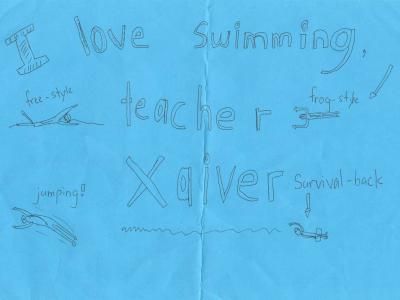 I love swimming,
free-style
teacher
frog-style
Xaiver
jumping!
Survival-back